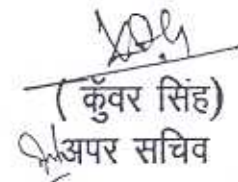 ( कुँवर सिंह)
अपर सचिव